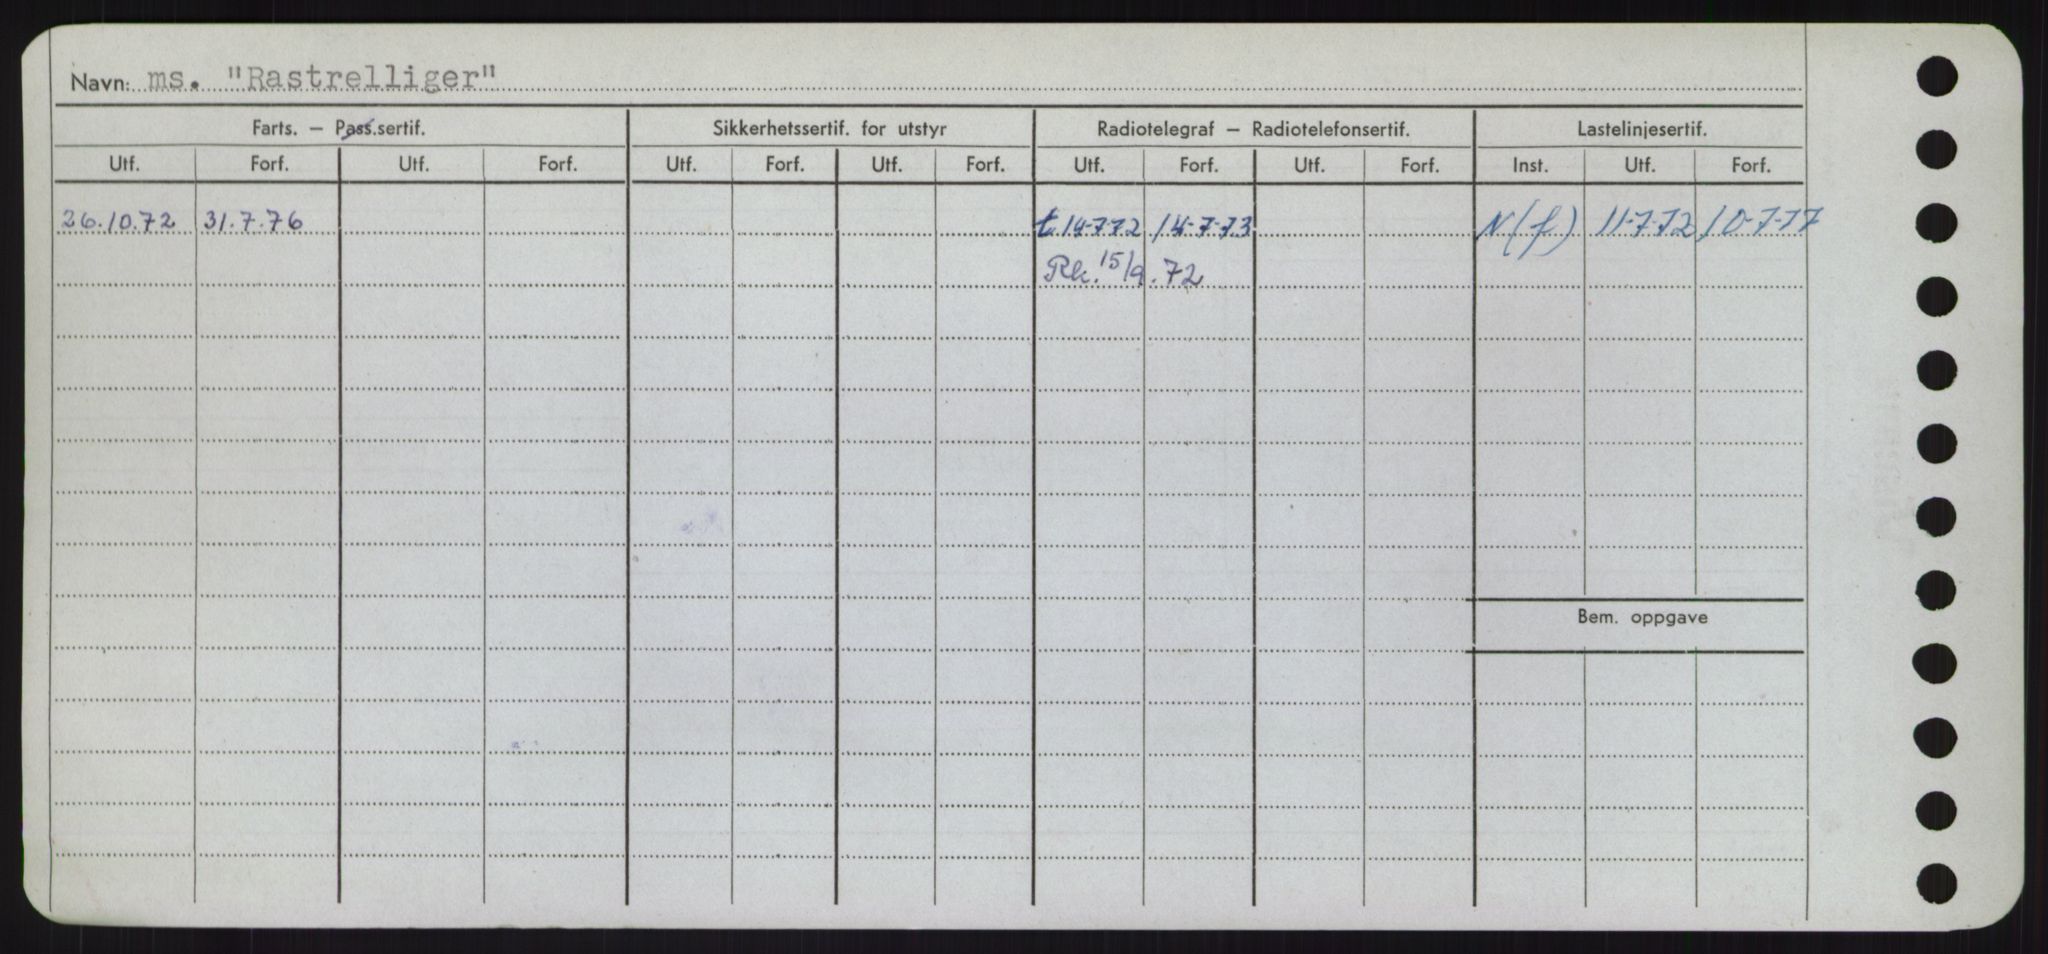 Navn: ms. "Rastrelliger"
Farts. – Pass.sertif. Sikkerhetssertif. for utstyr Radiotelegraf – Radiotelefonsertif. Lastelinjesertif.
Utf. Forf. Utf. Forf. Utf. Forf. Utf. Forf. Utf. Forf. Utf. Forf. Inst. Utf. Forf.
26.10.72 31.7.76 t 14-7-72 14-7-73 N(f) 11-7-72 10-7-77
Rk. 15/9.72
Bem. oppgave